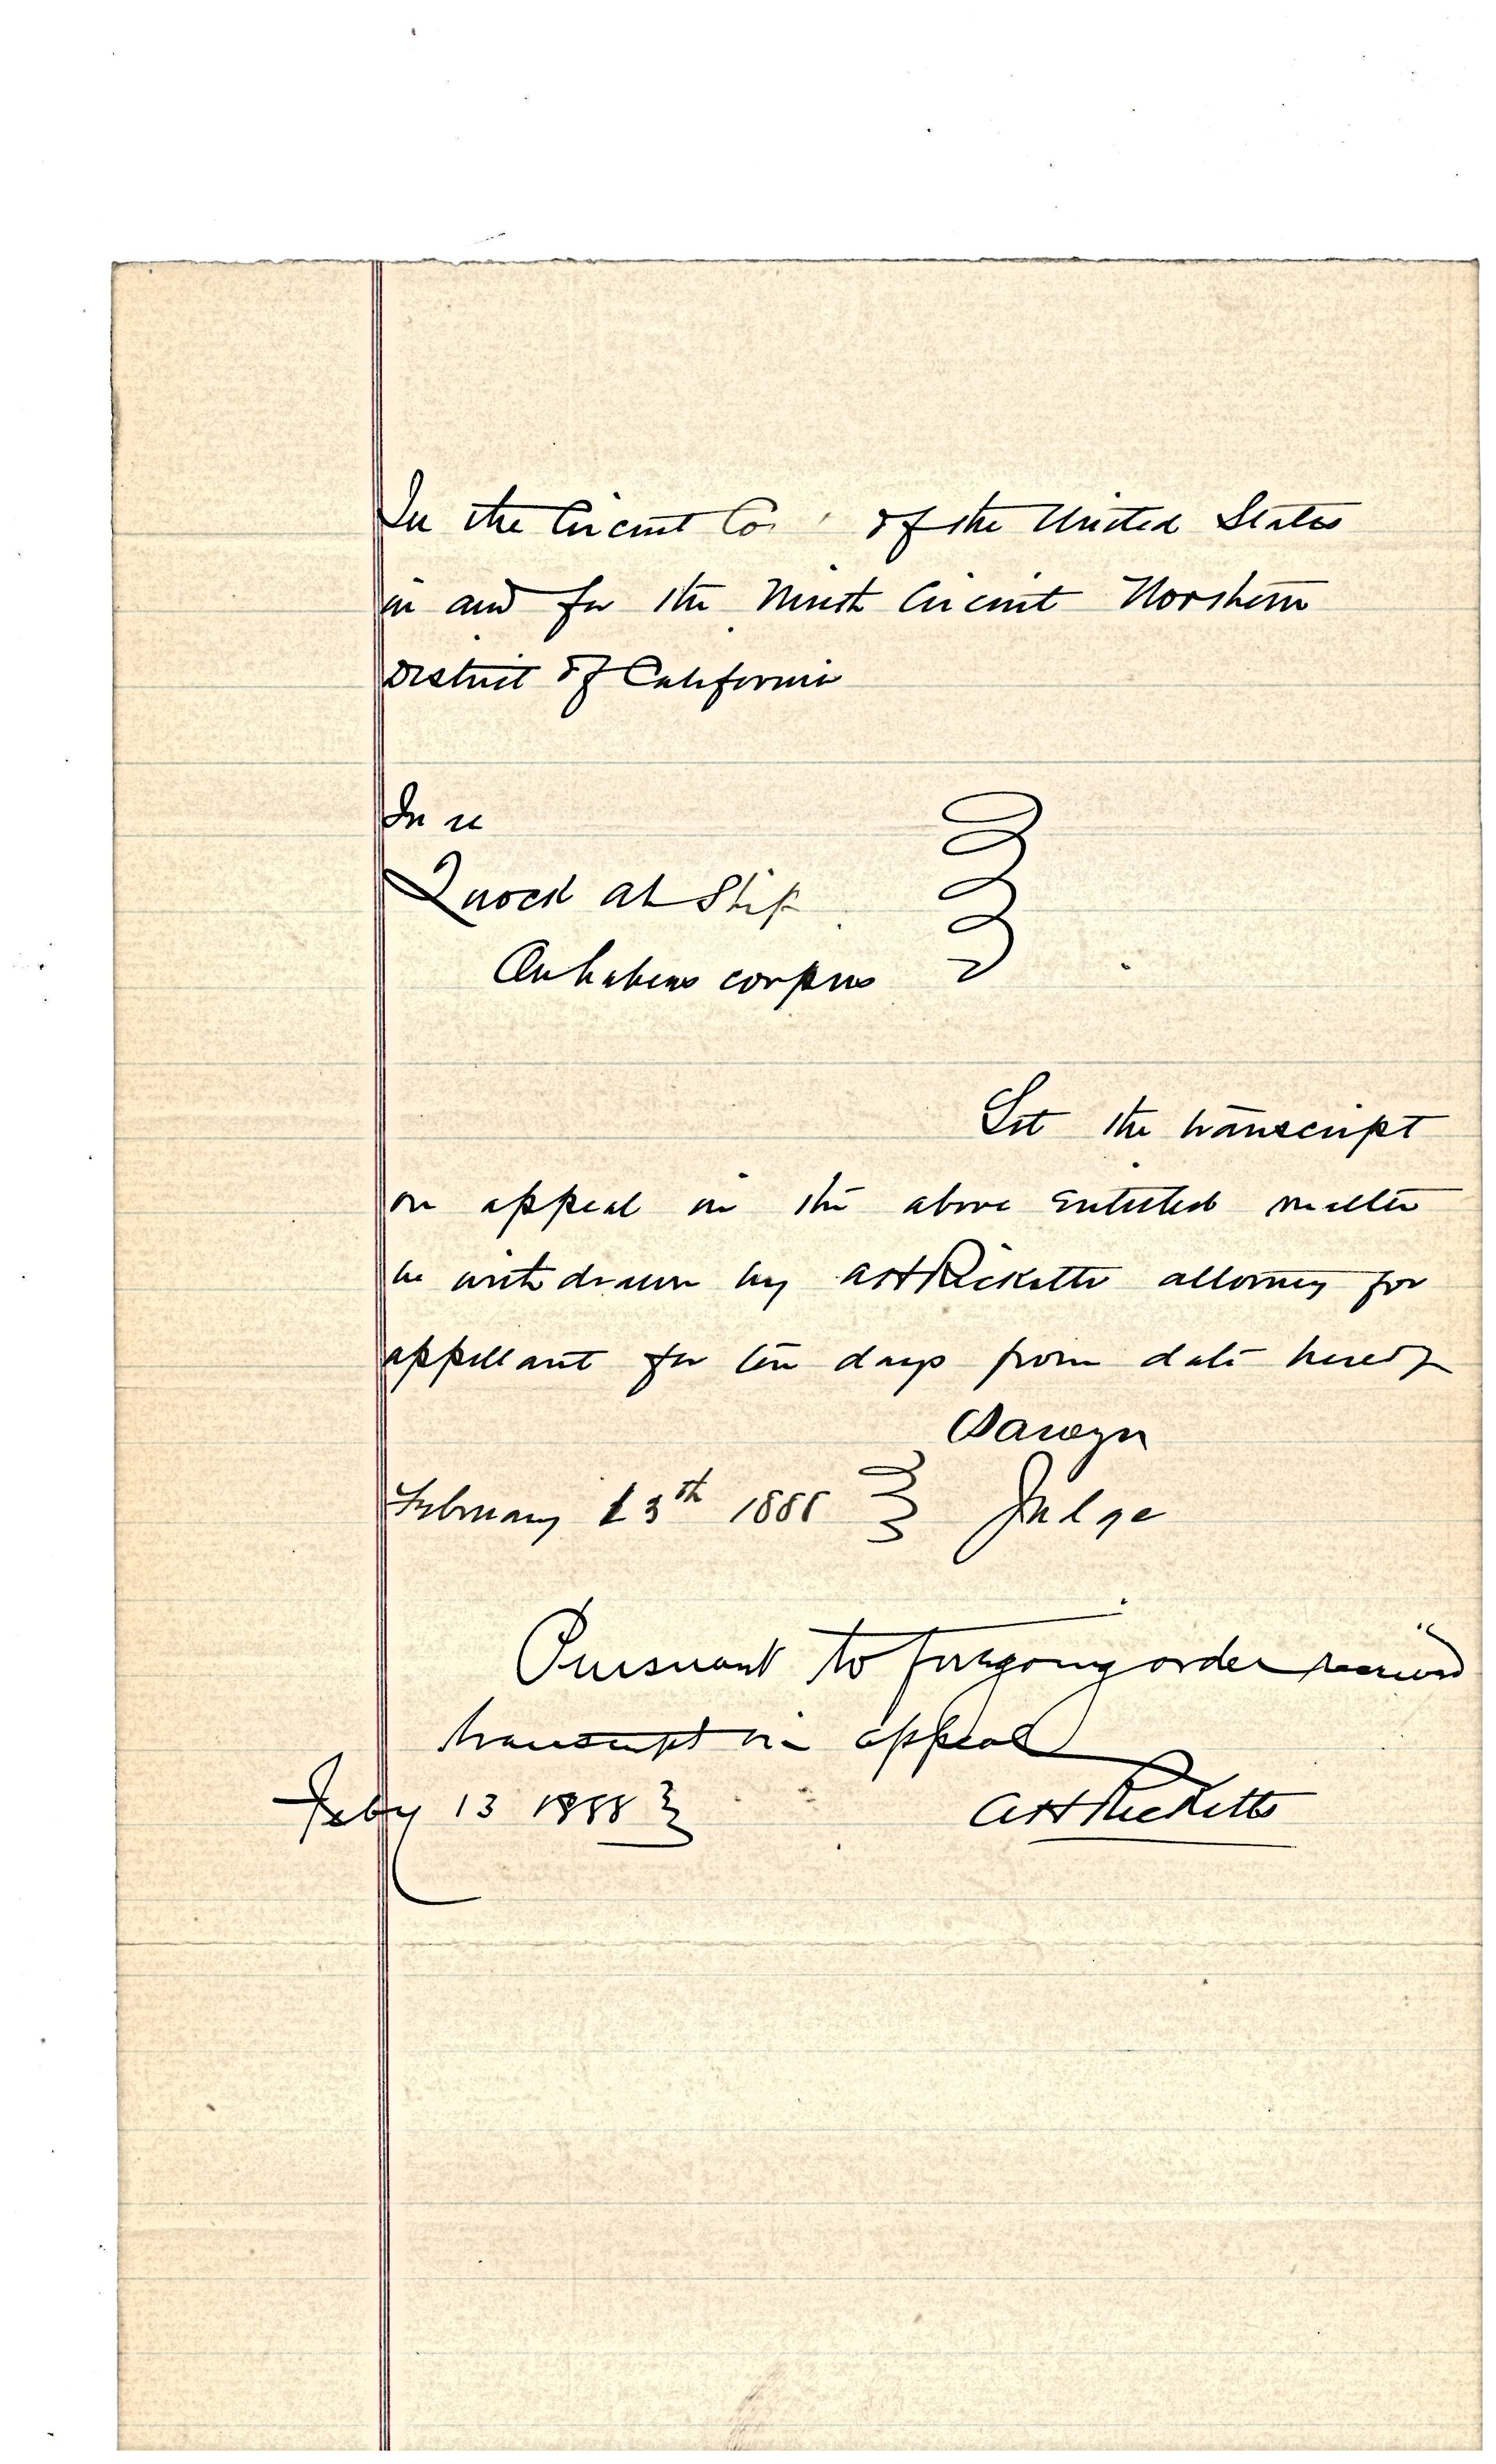 In the Circuit Co of the United States
in and for the Ninth Circuit Northern
District of California
In re
Quock ah Ship
On habeas corpus
Let the transcript
on appeal in the above entitled matter
be withdrawn by A H Ricketts attorney for
appellant for ten days from date hereof
Sawyer
February 13th 1888 Judge
Pursuant to foregoing order received
transcript on appeal
Feby 13 1888 A H Ricketts